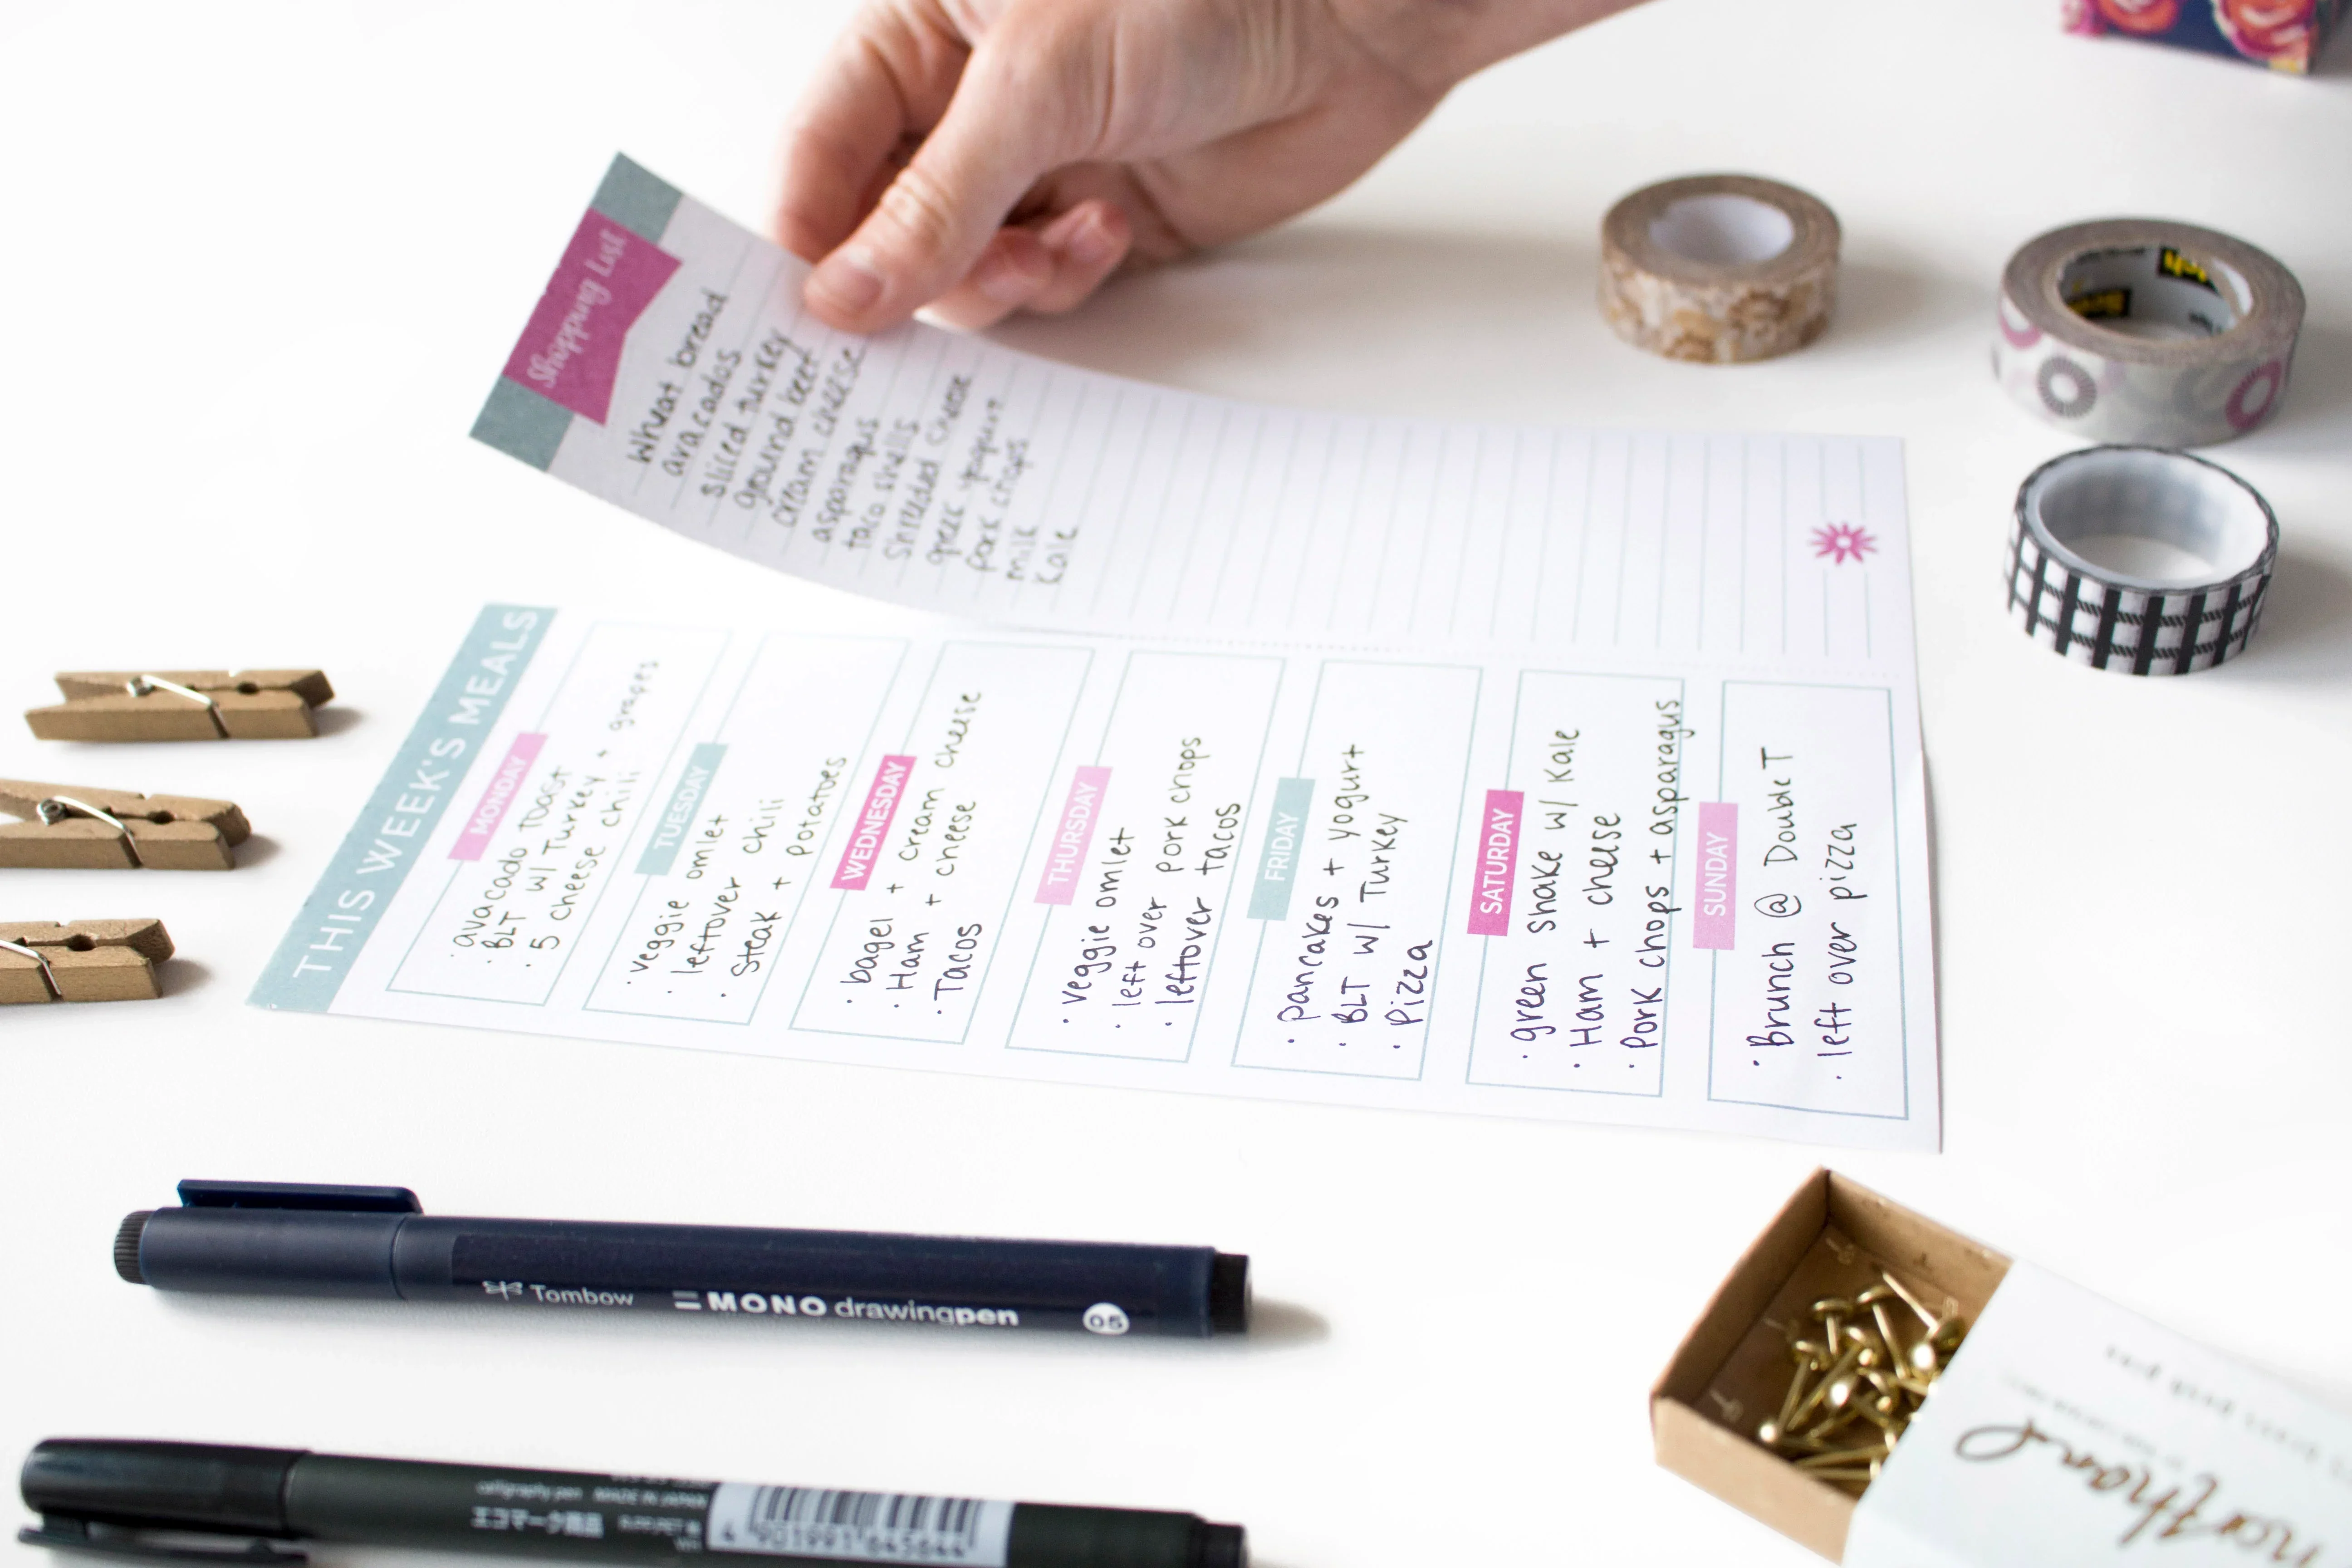 Shopping List
Wheat bread
avacados
sliced turkey
ground beef
cream cheese
asparagus
taco shells
Shredded cheese
greek yogurt
pork chops
milk
Kale
THIS WEEK'S MEALS
MONDAY
· avacado toast
· BLT w/ Turkey + grapes
· 5 cheese chili
TUESDAY
· veggie omlet
· leftover chili
· Steak + potatoes
WEDNESDAY
· bagel + cream cheese
· Ham + cheese
· Tacos
THURSDAY
· veggie omlet
· left over pork chops
· leftover tacos
FRIDAY
· pancakes + yogurt
· BLT w/ Turkey
· Pizza
SATURDAY
· green shake w/ Kale
· Ham + cheese
· Pork chops + asparagus
SUNDAY
· Brunch @ Double T
· left over pizza
Tombow MONO drawingpen 05
calligraphy pen MADE IN JAPAN
エコマーク商品
4 901991 645644
brass push pins